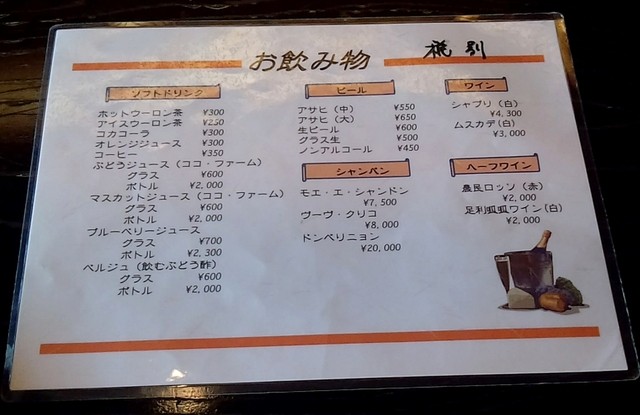 お飲み物
税別
ソフトドリンク
ホットウーロン茶 ¥300
アイスウーロン茶 ¥250
コカコーラ ¥300
オレンジジュース ¥300
コーヒー ¥350
ぶどうジュース(ココ・ファーム)
グラス ¥600
ボトル ¥2,000
マスカットジュース(ココ・ファーム)
グラス ¥600
ボトル ¥2,000
ブルーベリージュース
グラス ¥700
ボトル ¥2,300
ベルジュ(飲むぶどう酢)
グラス ¥600
ボトル ¥2,000
ビール
アサヒ(中) ¥550
アサヒ(大) ¥650
生ビール ¥600
グラス生 ¥500
ノンアルコール ¥450
シャンパン
モエ・エ・シャンドン
¥7,500
ヴーヴ・クリコ
¥8,000
ドンペリニョン
¥20,000
ワイン
シャブリ(白)
¥4,300
ムスカデ(白)
¥3,000
ハーフワイン
農民ロッソ(赤)
¥2,000
足利呱呱ワイン(白)
¥2,000